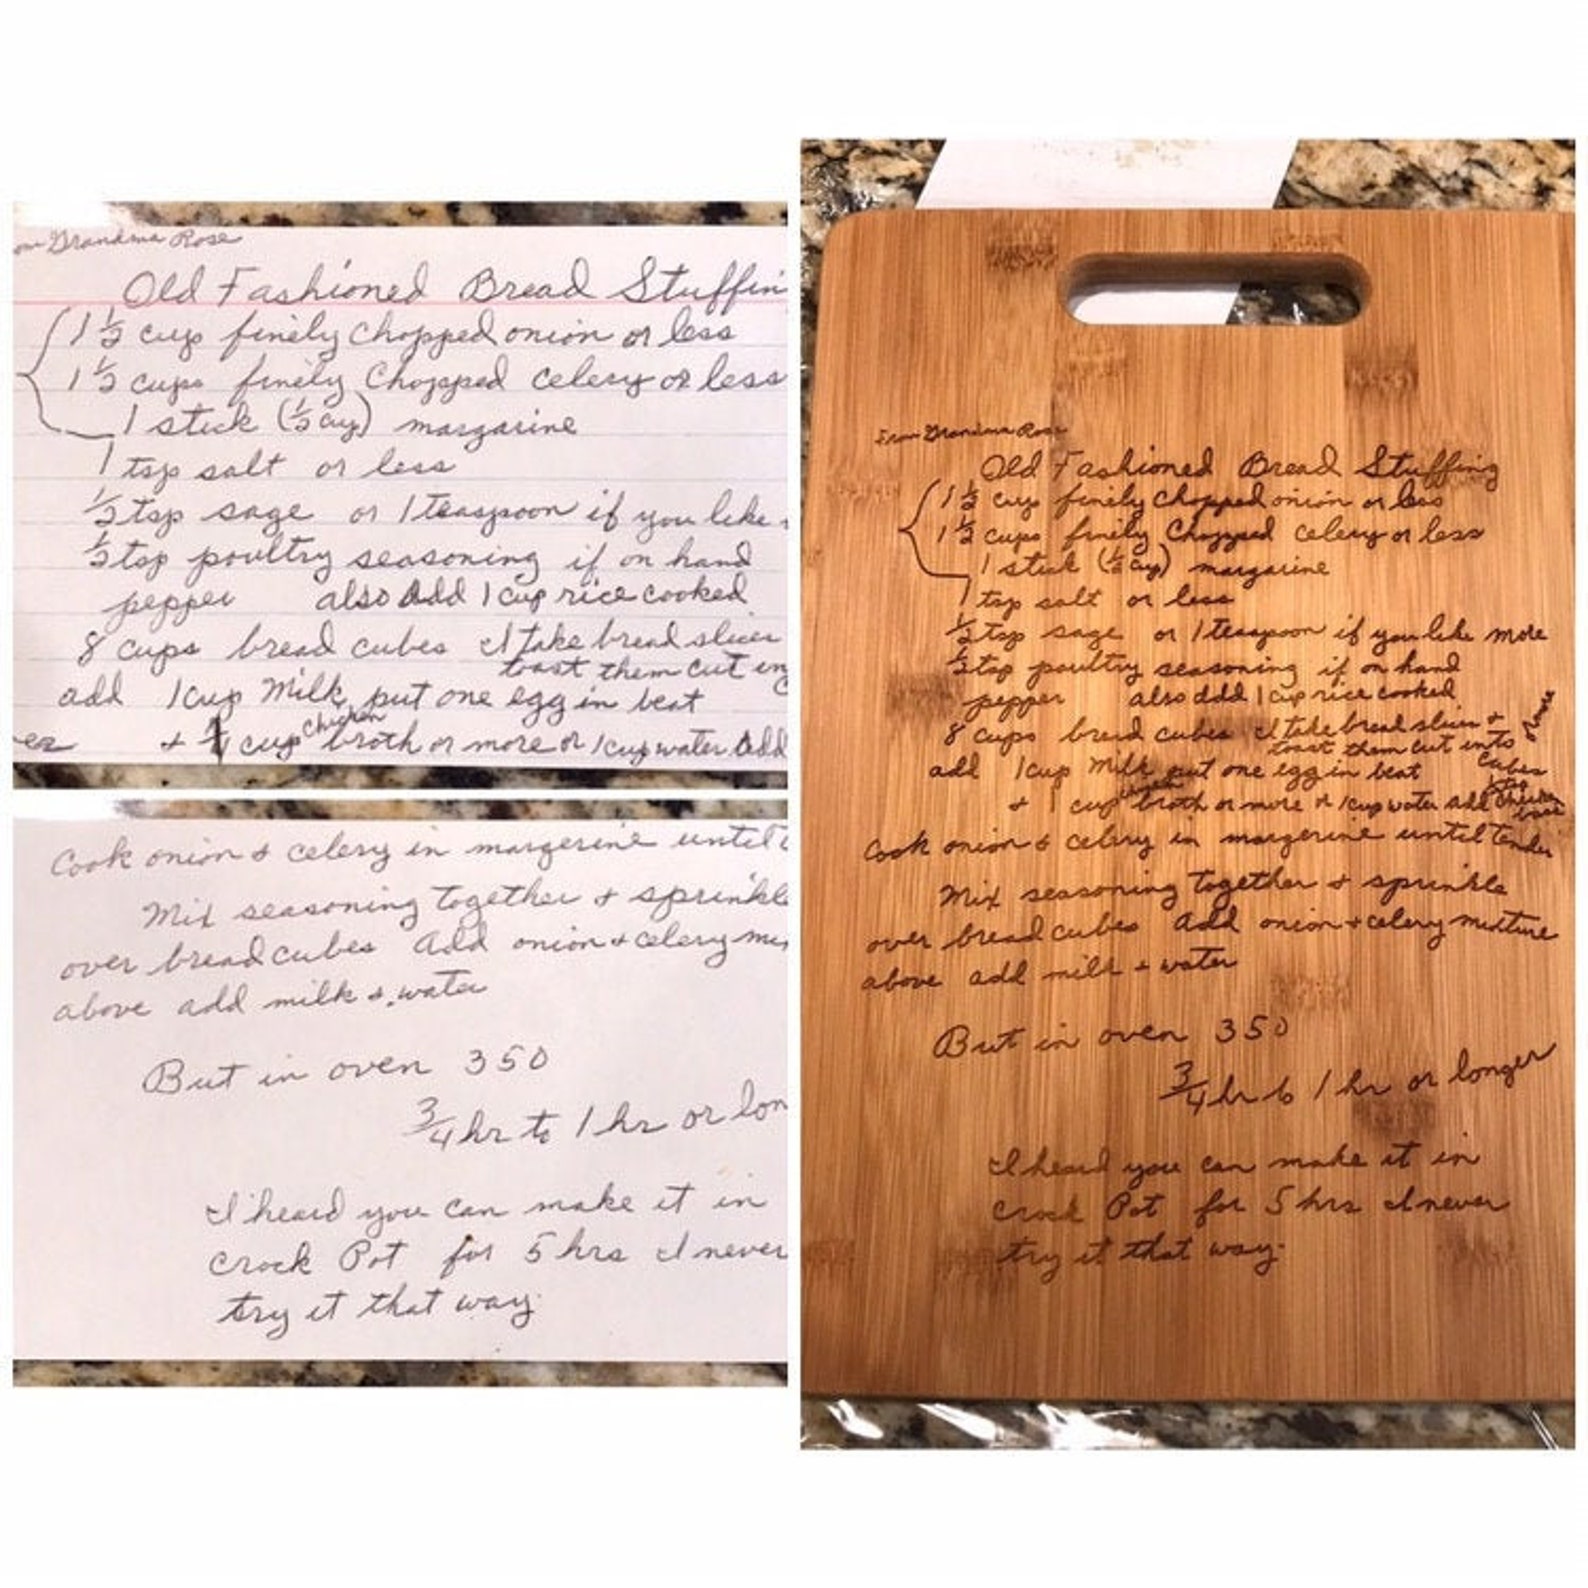 Grandma Rose
Old Fashioned Bread Stuffin
1 1/2 cup finely chopped onion or less
1 1/2 cups finely Chopped celery or less
1 stick (1/2 cup) margarine
1 tsp salt or less
1/2 tsp sage or 1 teaspoon if you like
1/2 tsp poultry seasoning if on hand
pepper also add 1 cup rice cooked
8 cups bread cubes I take bread slices
toast them cut in
add 1 cup Milk put one egg in beat
chicken
+ cup broth or more or 1 cup water add
Cook onion & celery in margerine until
Mix seasoning together + sprinkle
over bread cubes Add onion + celery mix
above add milk + water
But in oven 350
3/4 hr to 1 hr or lon
I heard you can make it in
Crock Pot for 5 hrs I never
try it that way.
From Grandma Rose
Old Fashioned Bread Stuffing
1 1/2 cup finely chopped onion or less
1 1/2 cups finely Chopped celery or less
1 stick (1/2 cup) margarine
1 tsp salt or less
1/2 tsp sage or 1 teaspoon if you like more
1/2 tsp poultry seasoning if on hand
pepper also add 1 cup rice cooked
8 cups bread cubes I take bread slices +
toast them cut into
cubes
add 1 cup Milk put one egg in beat
chicken
+ 1 cup broth or more or 1 cup water add chicken
base
Cook onion & celery in margerine until tender
Mix seasoning together + sprinkle
over bread cubes Add onion + celery mixture
above add milk + water
But in oven 350
3/4 hr to 1 hr or longer
I heard you can make it in
Crock Pot for 5 hrs I never
try it that way.